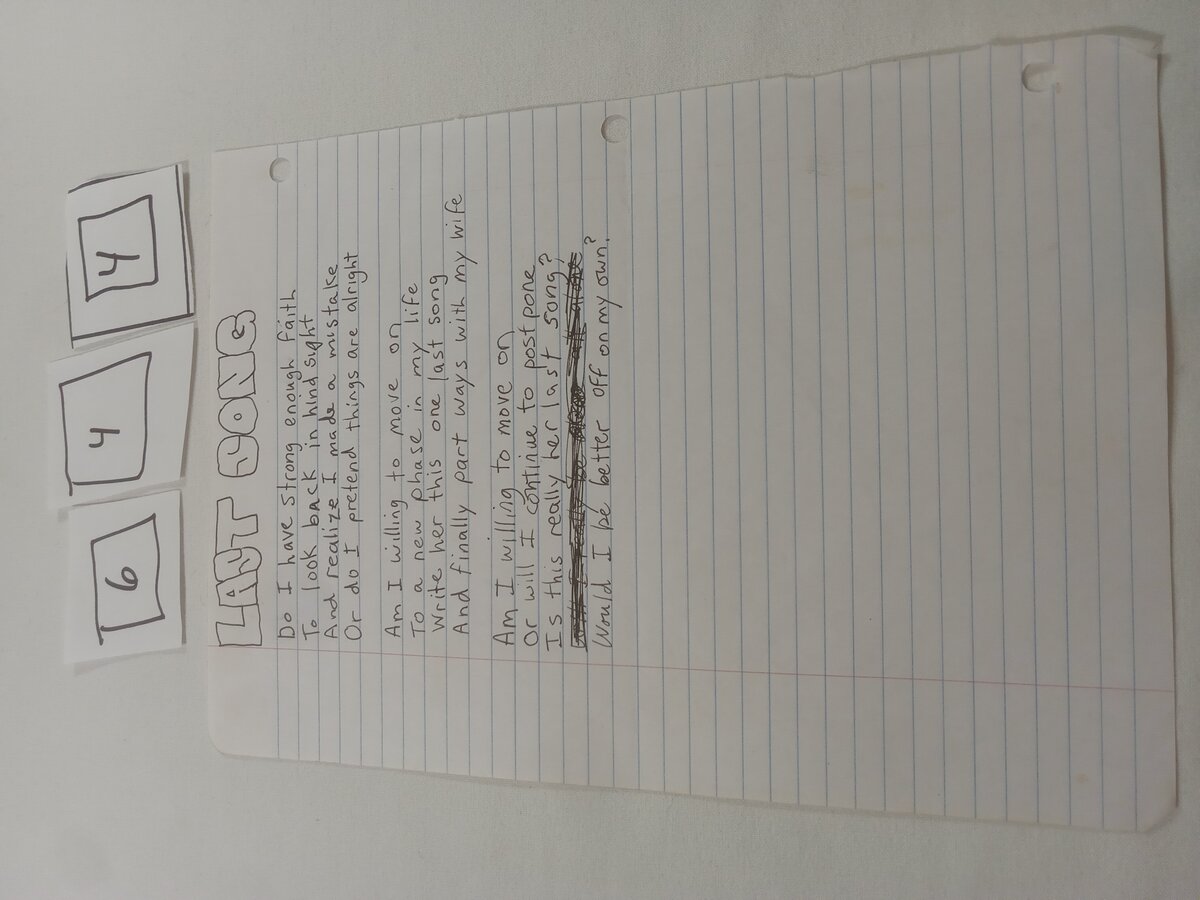 6 4 4
LAST SONG
Do I have strong enough faith
To look back in hindsight
And realize I made a mistake
Or do I pretend things are alright
Am I willing to move on
To a new phase in my life
Write her this one last song
And finally part ways with my wife
Am I willing to move on
Or will I continue to postpone
Is this really her last song?
Would I be better off on my own?